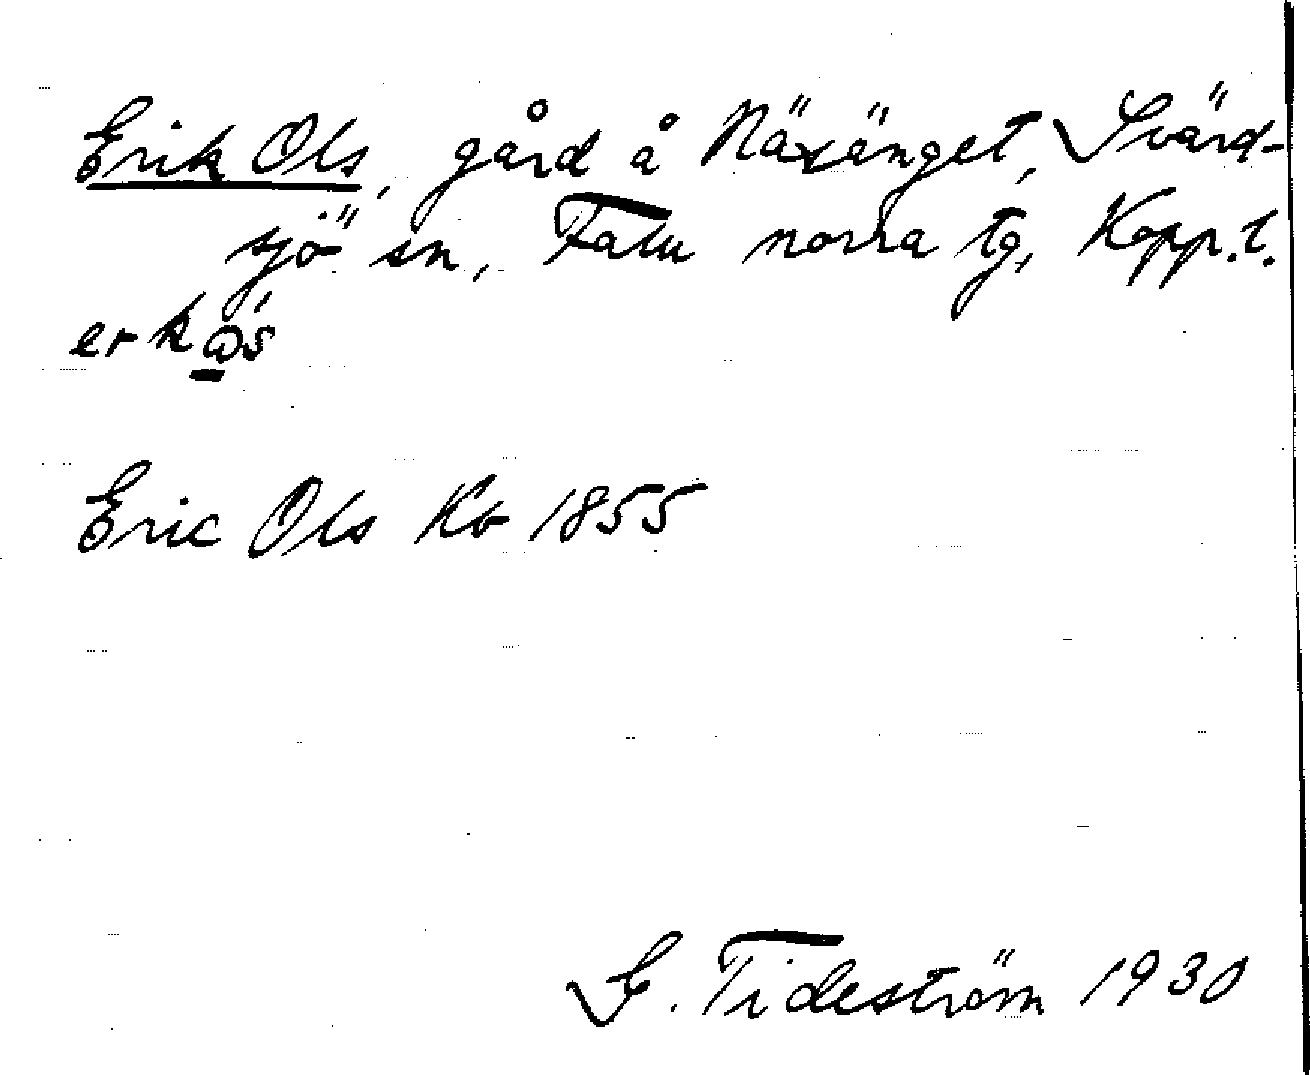 Erik Ols, gård å Näsänget, Svärd-
sjö sn, Falu norra tg, Kopp. l.
Eric Ols Kb 1855
G. Tideström 1930